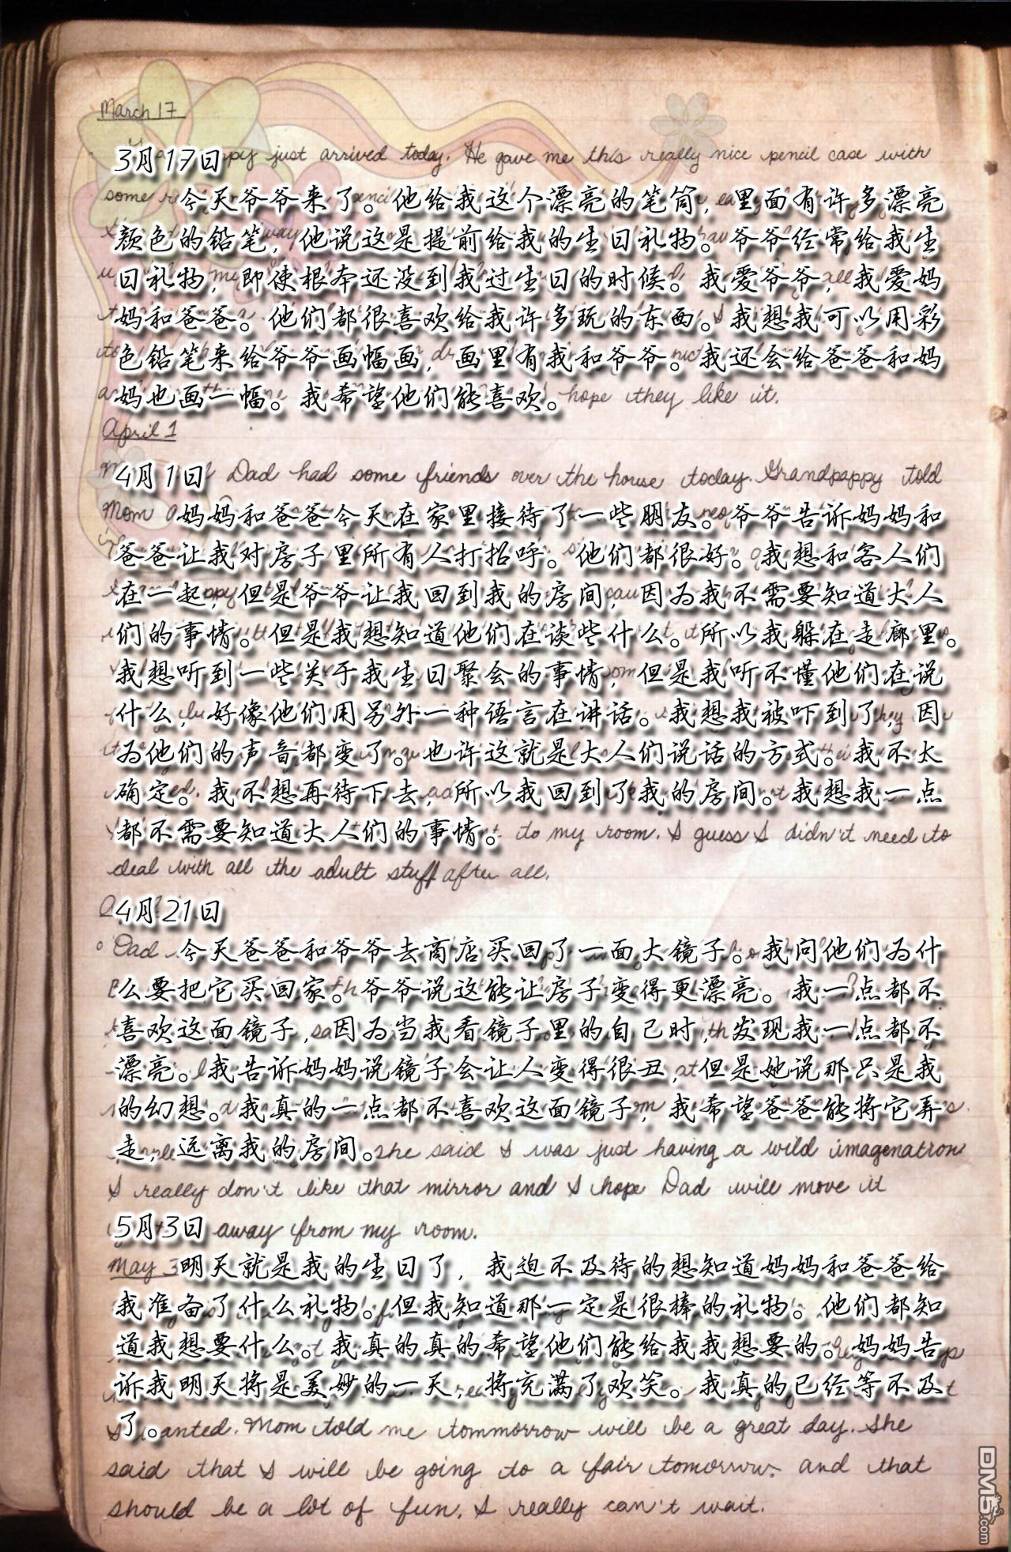 March 17
3月17日 just arrived today. He gave me this really nice pencil case with
some 今天爷爷来了。他给我这个漂亮的笔筒，里面有许多漂亮
颜色的铅笔，他说这是提前给我的生日礼物。爷爷经常给我生
日礼物，即使根本还没到我过生日的时候。我爱爷爷，我爱妈
妈和爸爸。他们都很喜欢给我许多玩的东西。我想我可以用彩
色铅笔来给爷爷画幅画，画里有我和爷爷。我还会给爸爸和妈
妈也画一幅。我希望他们能喜欢。 hope they like it.
April 1
4月1日 Dad had some friends over the house today. Grandpappy told
Mom 妈妈和爸爸今天在家里接待了一些朋友。爷爷告诉妈妈和
爸爸让我对房子里所有人打招呼。他们都很好。我想和客人们
在一起，但是爷爷让我回到我的房间，因为我不需要知道大人
们的事情。但是我想知道他们在谈些什么。所以我躲在走廊里。
我想听到一些关于我生日聚会的事情，但是我听不懂他们在说
什么，好像他们用另外一种语言在讲话。我想我被吓到了，因
为他们的声音都变了。也许这就是大人们说话的方式。我不太
确定。我不想再待下去，所以我回到了我的房间。我想我一点
都不需要知道大人们的事情。 to my room. I guess I didn't need to
deal with all the adult stuff after all.
4月21日
Dad 今天爸爸和爷爷去商店买回了一面大镜子。我问他们为什
么要把它买回家。爷爷说这能让房子变得更漂亮。我一点都不
喜欢这面镜子，因为当我看镜子里的自己时，发现我一点都不
漂亮。我告诉妈妈说镜子会让人变得很丑，但是她说那只是我
的幻想。我真的一点都不喜欢这面镜子，我希望爸爸能将它弄
走，远离我的房间。 she said I was just having a wild imagenation
I really don't like that mirror and I hope Dad will move it
5月3日 away from my room.
May 3 明天就是我的生日了，我迫不及待的想知道妈妈和爸爸给
我准备了什么礼物。但我知道那一定是很棒的礼物。他们都知
道我想要什么。我真的真的希望他们能给我我想要的。妈妈告
诉我明天将是美妙的一天，将充满了欢笑。我真的已经等不及
了。 wanted. Mom told me tommorrow will be a great day. She
said that I will be going to a fair tomorrow. and that
should be a lot of fun. I really can't wait.
DM5.com